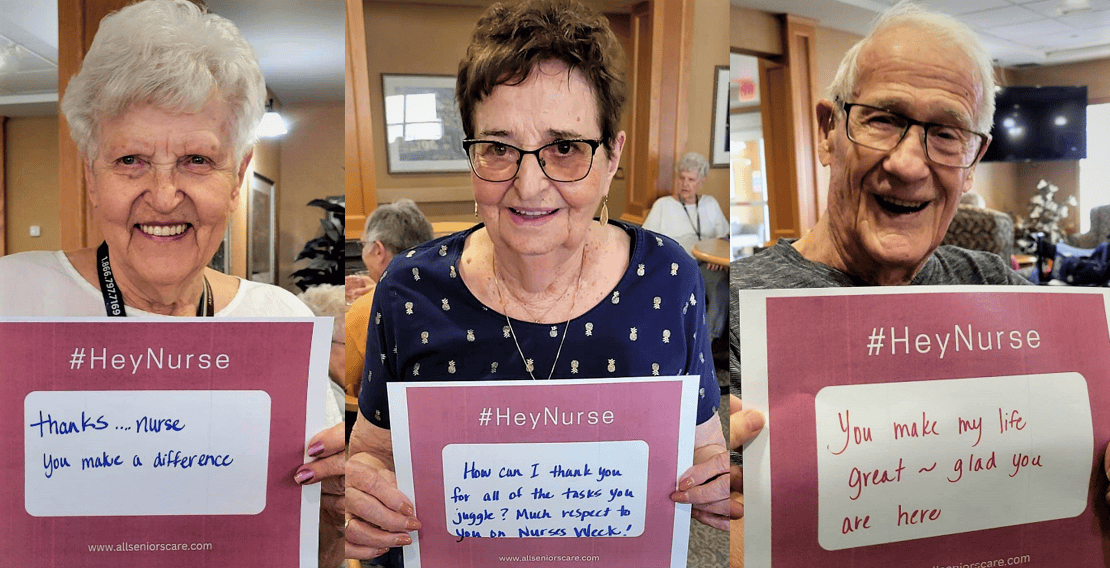 1.866.797.7169
#HeyNurse
thanks....nurse
you make a difference
www.allseniorscare.com
#HeyNurse
How can I thank you
for all of the tasks you
juggle? Much respect to
you on Nurses Week!
www.allseniorscare.com
#HeyNurse
You make my life
great ~ glad you
are here
www.allseniorscare.com